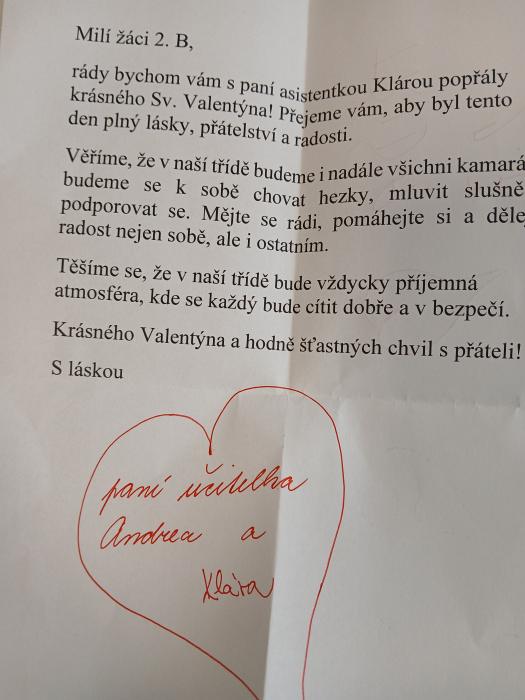 Milí žáci 2. B,
rády bychom vám s paní asistentkou Klárou popřály
krásného Sv. Valentýna! Přejeme vám, aby byl tento
den plný lásky, přátelství a radosti.
Věříme, že v naší třídě budeme i nadále všichni kamará
budeme se k sobě chovat hezky, mluvit slušně
podporovat se. Mějte se rádi, pomáhejte si a děle
radost nejen sobě, ale i ostatním.
Těšíme se, že v naší třídě bude vždycky příjemná
atmosféra, kde se každý bude cítit dobře a v bezpečí.
Krásného Valentýna a hodně šťastných chvil s přáteli!
S láskou
paní učitelka
Andrea a
Klára